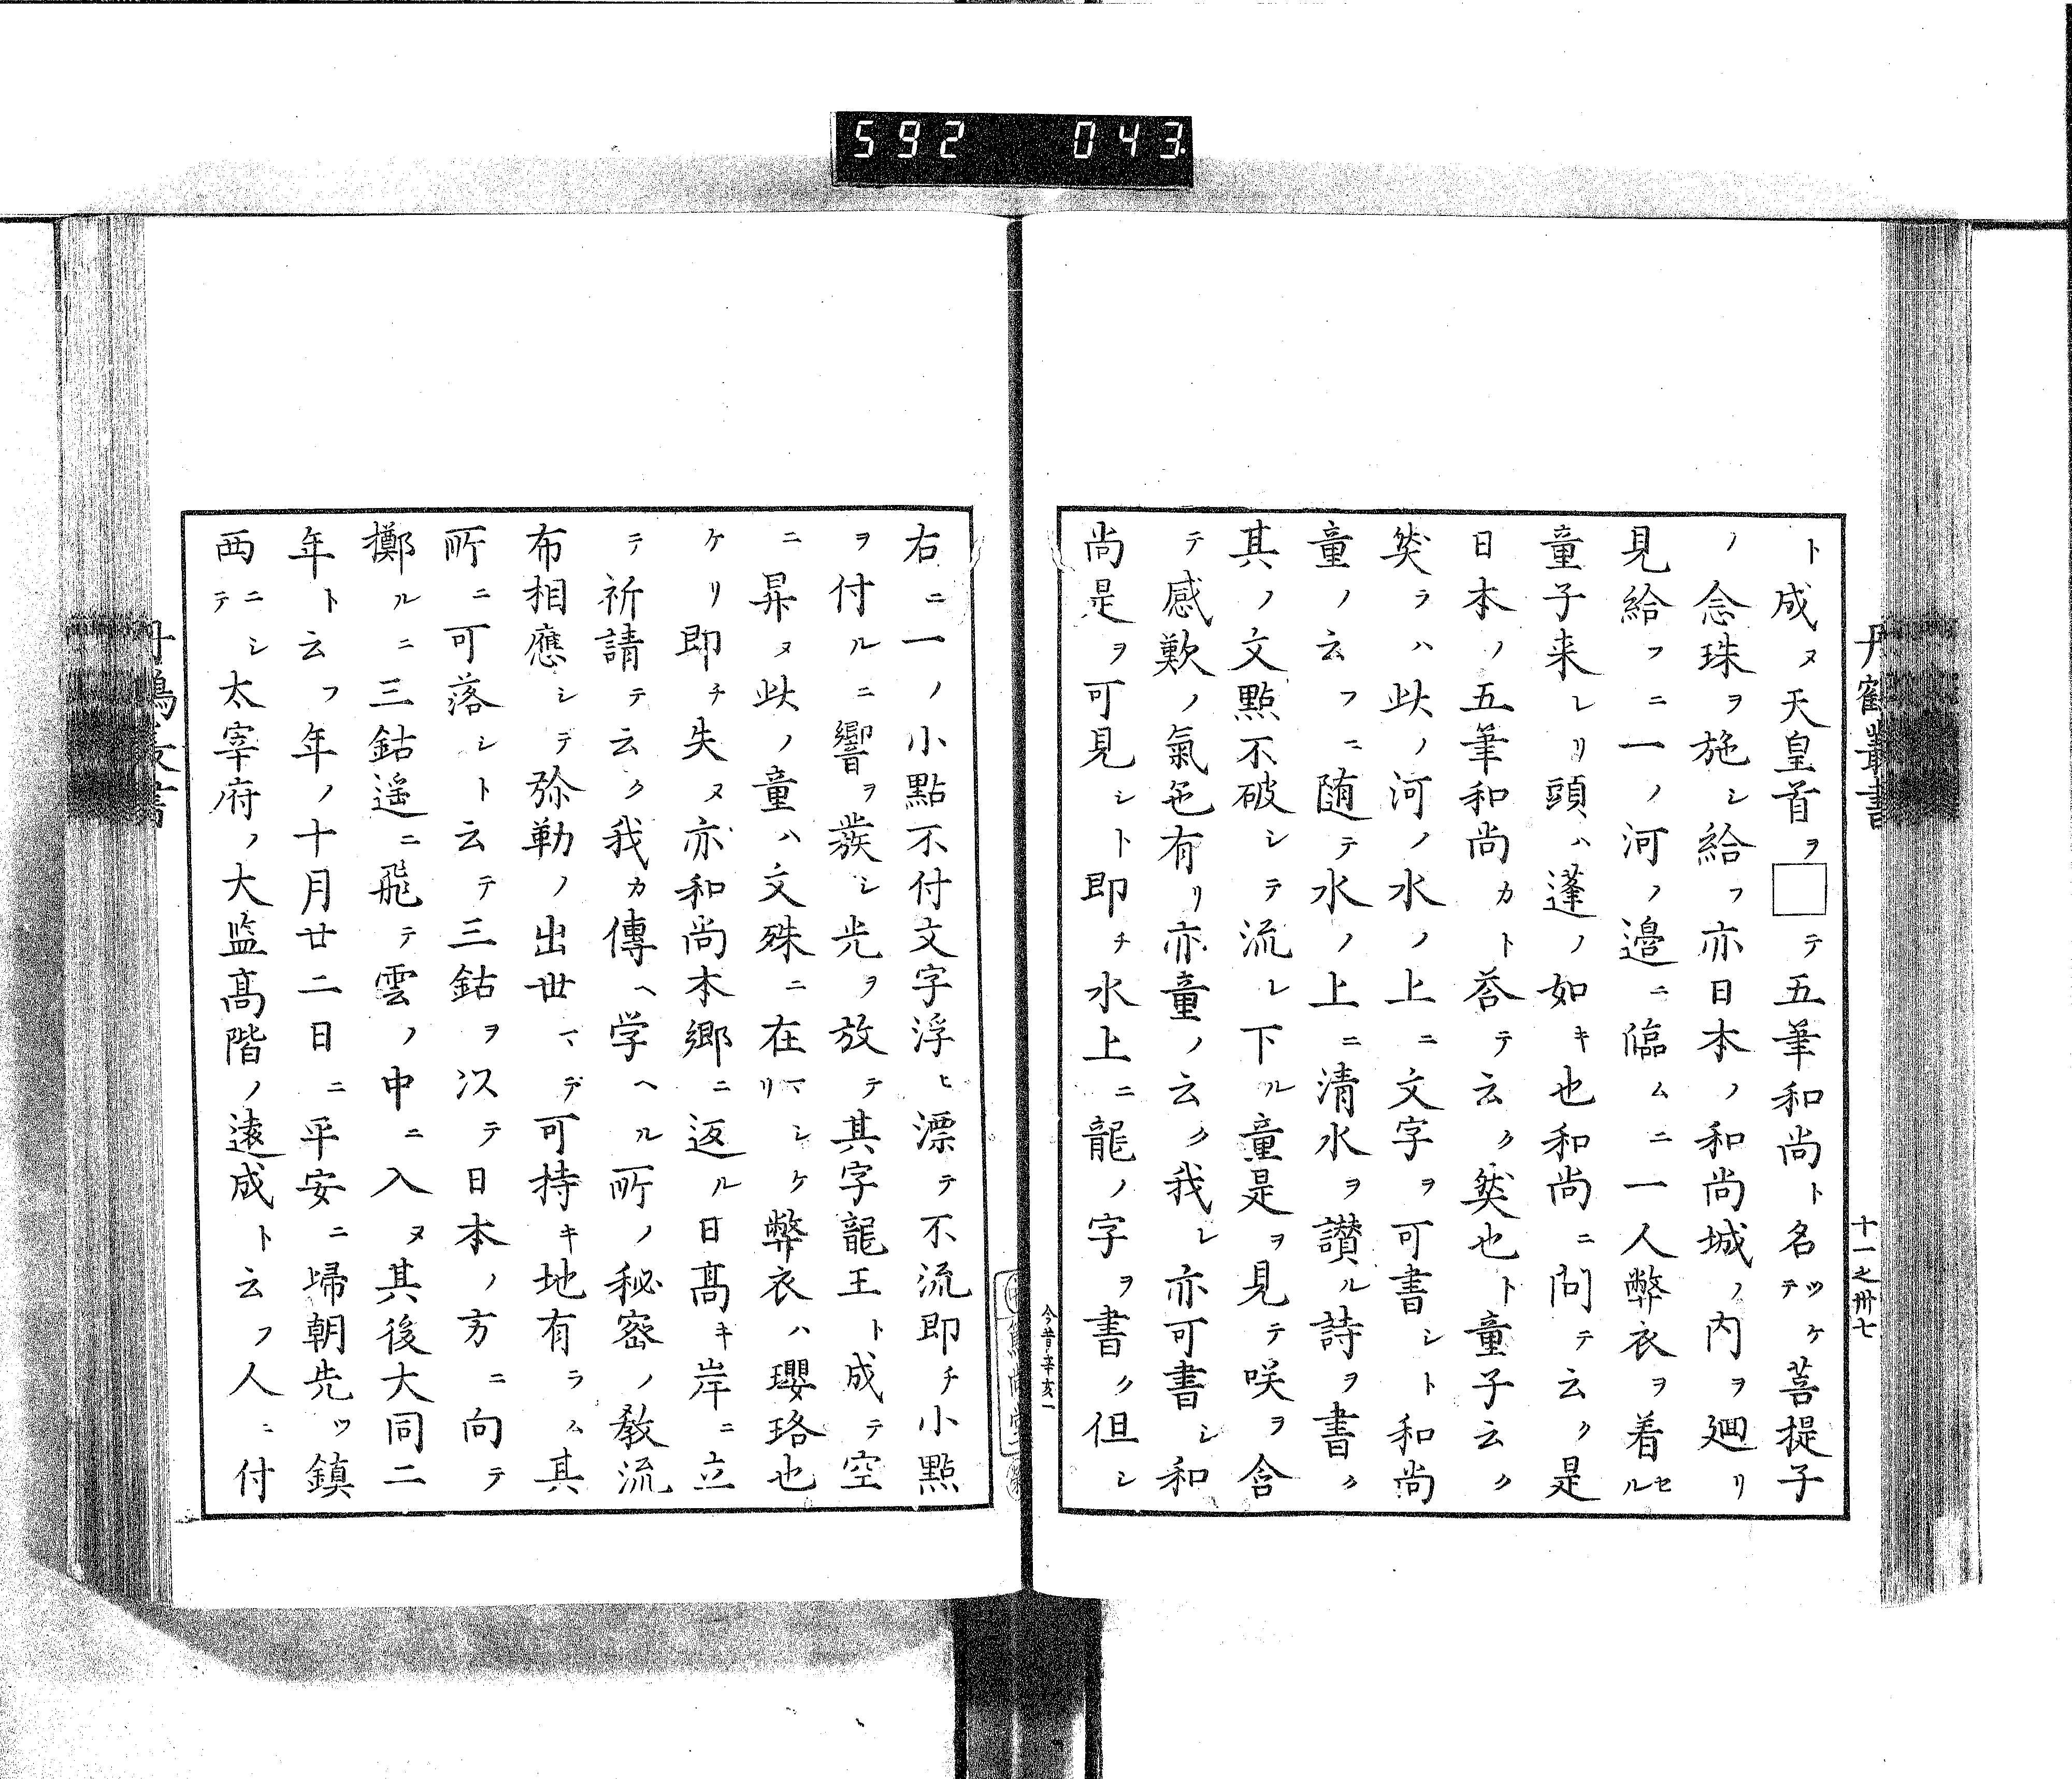 592 043
丹鶴叢書
十一之卅七
ト成ヌ天皇首ヲ□テ五筆和尚ト名ツケテ菩提子
ノ念珠ヲ施シ給フ亦日本ノ和尚城ノ内ヲ廻リ
見給フニ一ノ河ノ邉ニ臨ムニ一人弊衣ヲ着セル
童子来レリ頭ハ蓬ノ如キ也和尚ニ問テ云ク是
日本ノ五筆和尚カト荅テ云ク然也ト童子云ク
然ラハ此ノ河ノ水ノ上ニ文字ヲ可書シト和尚
童ノ云フニ随テ水ノ上ニ清水ヲ讃ル詩ヲ書ク
其ノ文點不破シテ流レ下ル童是ヲ見テ咲ヲ含
テ感歎ノ氣色有リ亦童ノ云ク我レ亦可書シ和
尚是ヲ可見シト即チ水上ニ龍ノ字ヲ書ク但シ
今昔辛亥一
右ニ一ノ小點不付文字浮ヒ漂テ不流即チ小點
ヲ付ルニ響ヲ發シ光ヲ放テ其字龍王ト成テ空
ニ昇ヌ此ノ童ハ文殊ニ在マシケリ弊衣ハ瓔珞也
ケリ即チ失ヌ亦和尚本郷ニ返ル日髙キ岸ニ立
テ祈請テ云ク我カ傳ヘ学ヘル所ノ秘密ノ教流
布相應シテ弥勒ノ出世マデ可持キ地有ラム其
所ニ可落シト云テ三鈷ヲ以テ日本ノ方ニ向テ
擲ルニ三鈷遥ニ飛テ雲ノ中ニ入ヌ其後大同二
年ト云フ年ノ十月廿二日ニ平安ニ歸朝先ツ鎮
西ニシテ太宰府ノ大监髙階ノ遠成ト云フ人ニ付